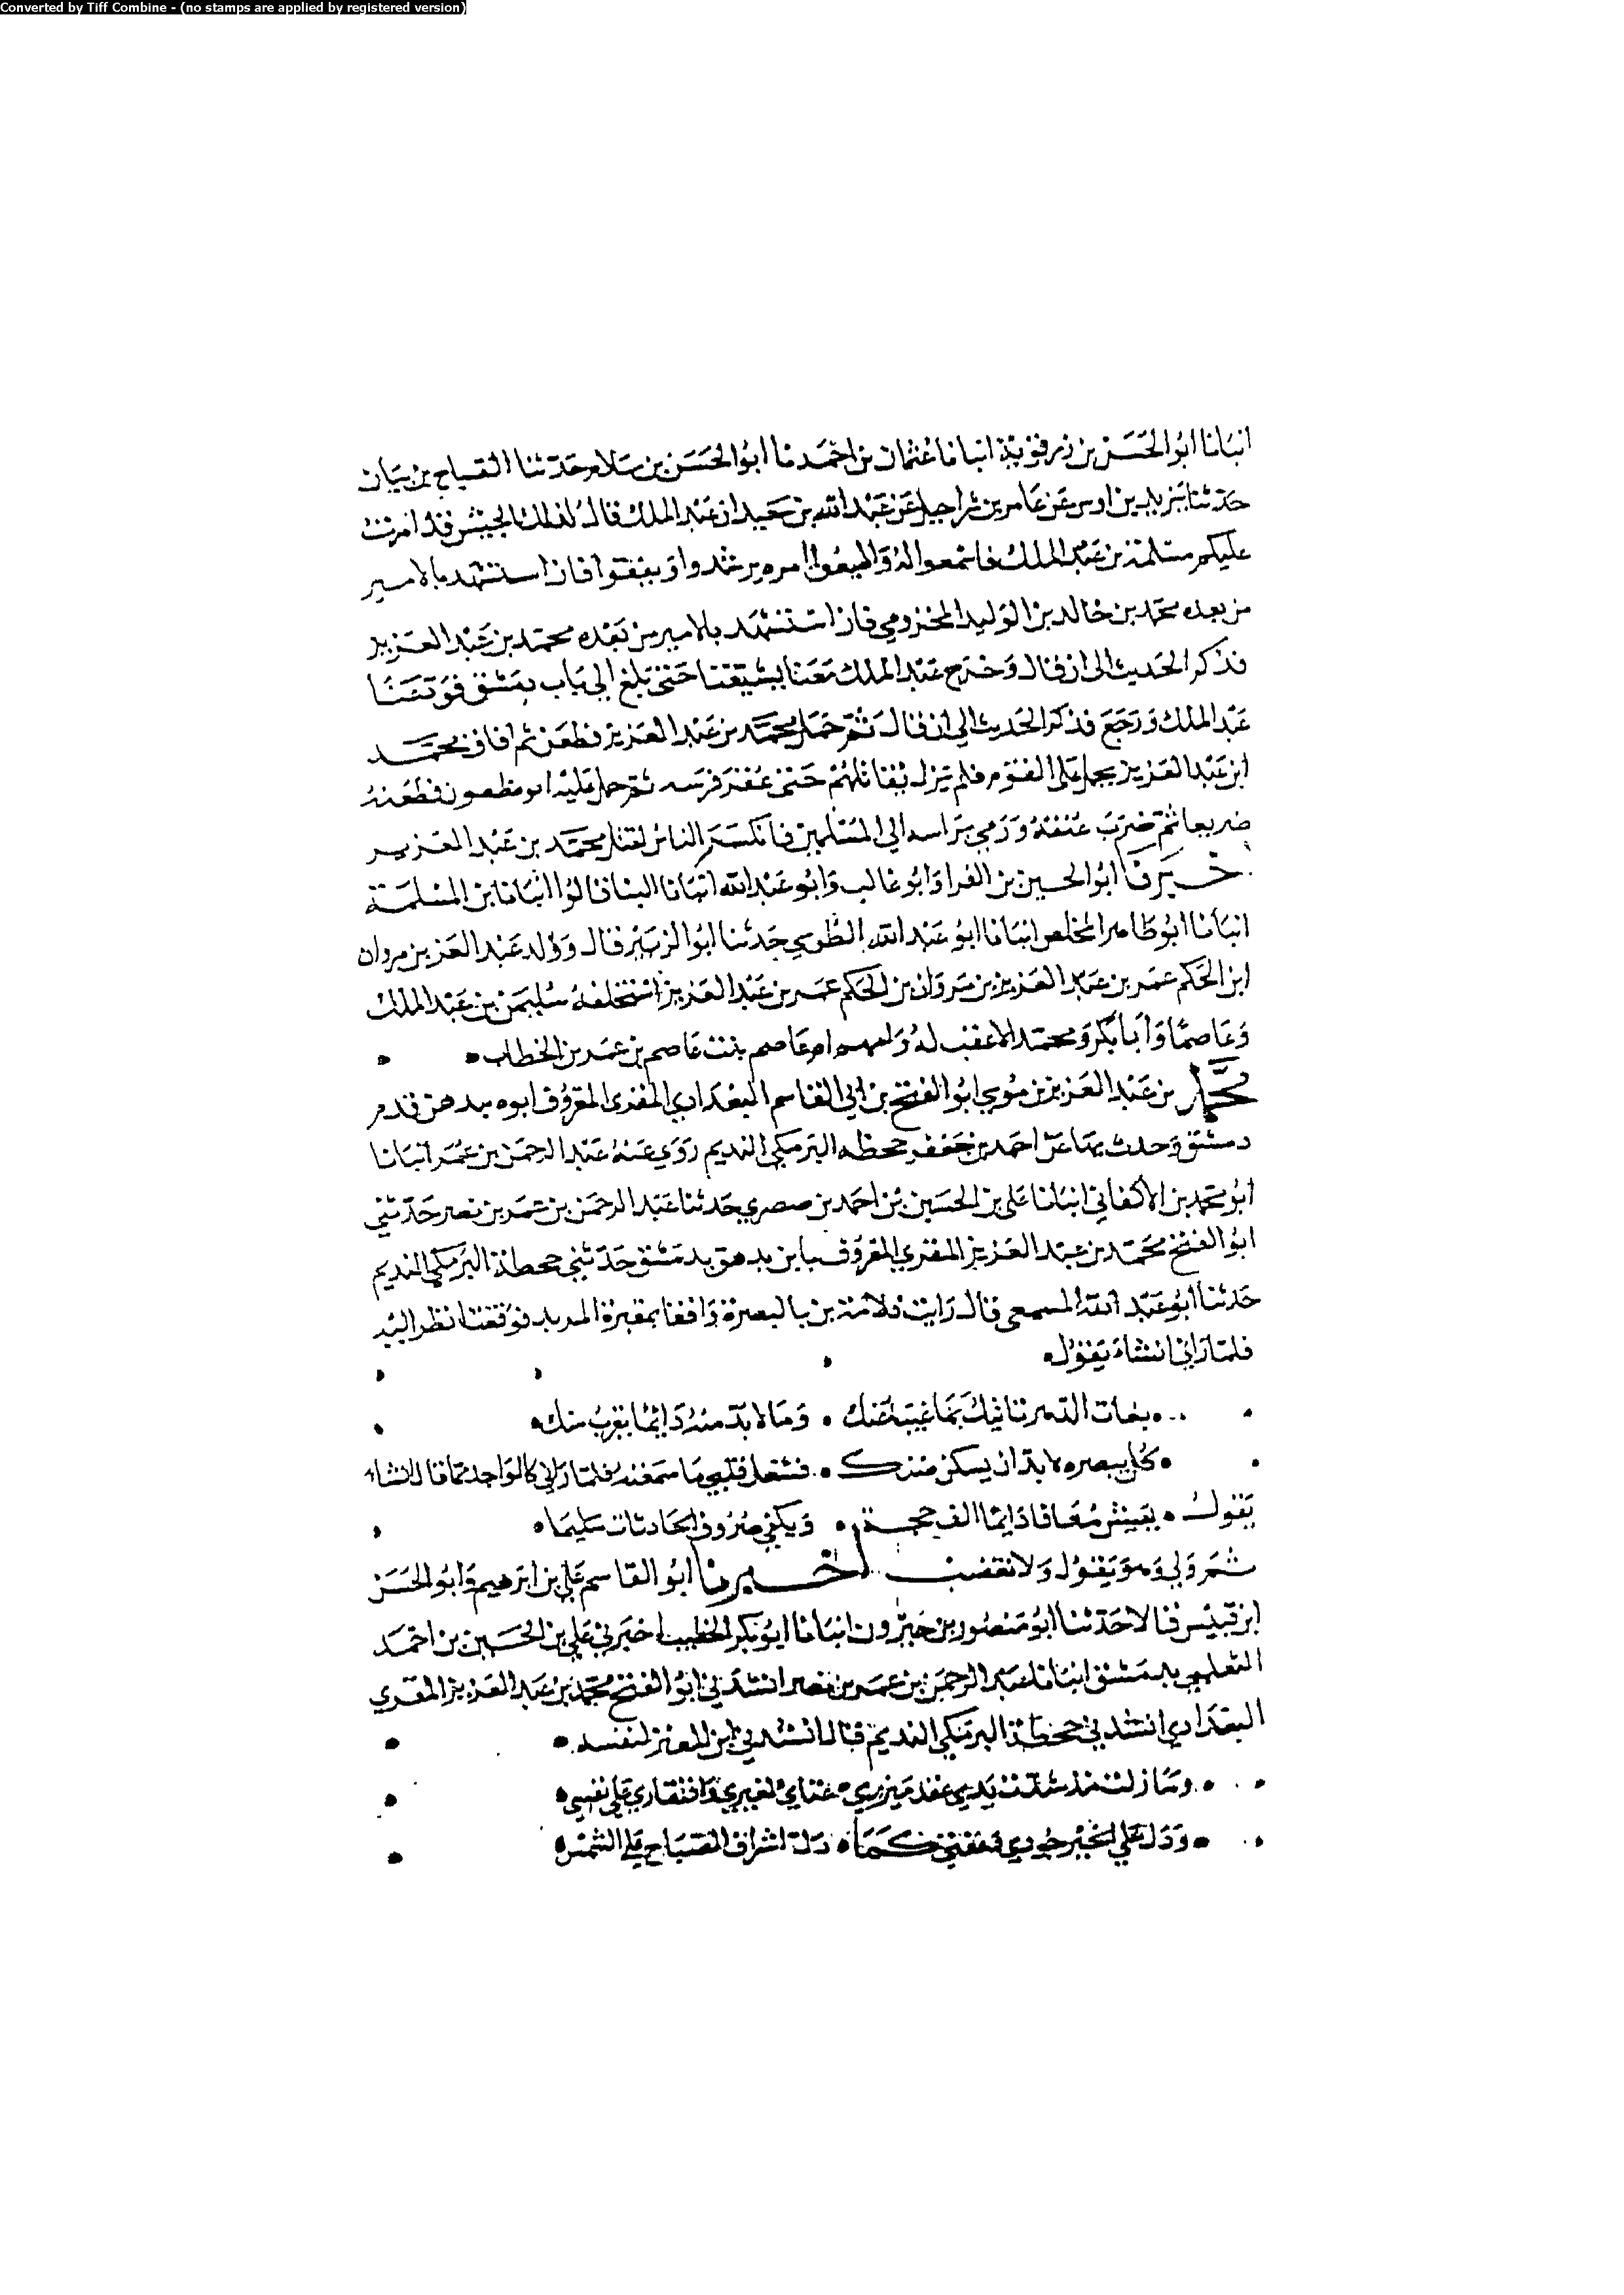 Converted by Tiff Combine - (no stamps are applied by registered version)
انبانا ابو الحسن بن زرقويه انبانا عثمان بن احمد نا ابو الحسن بن سلام حدثنا الصباح بن بيان
حدثنا يزيد بن اوس عن عامر بن شراحيل عن عبد الله بن سعيد ان عبد الملك قال لذلك الجيش قد امرت
عليكم مسلمة بن عبد الملك فاسمعوا له واطيعوا امره ترشدوا وتفقوا فان استشهد فالامير
من بعده محمد بن خالد بن الوليد المخزومي فان استشهد فالامير من بعده محمد بن عبد العزيز
فذكر الحديث الى ان قال وخرج عبد الملك معنا يشيعنا حتى بلغ الى باب دمشق فودعنا
عبد الملك ورجع فذكر الحديث الى ان قال ثم حمل محمد بن عبد العزيز فطعن ثم افاق محمد
ابن عبد العزيز يحمل على القوم فلم يزل يقاتلهم حتى عقر فرسه ثم حمل عليه مطعون فطعنه
ضريعا ثم ضرب عنقه ورمي براسه الى المسلمين فانكسر الناس لقتل محمد بن عبد العزيز
خبرنا ابو الحسين بن الفرا وابو غالب وابو عبد الله انبانا البنا قالوا انبانا ابن المسلمة
انبانا ابو طاهر المخلص انبانا ابو عبد الله الطوسي حدثنا ابو الزبير قال وولد عبد العزيز بن مروان
ابن الحكم عمر بن عبد العزيز بن مروان بن الحكم عمر بن عبد العزيز استخلفه سليمن بن عبد الملك
وعاصما وابا بكر ومحمد الا عقب له وامهم ام عاصم بنت عاصم بن عمر بن الخطاب
محمد بن عبد العزيز بن موسى ابو الفتح بن ابي القاسم البغدادي المقرى المعروف ابوه ببدهن قدم
دمشق وحدث بها عن احمد بن جعفر جحظه البرمكي النديم روى عنه عبد الرحمن بن عمر انبانا
ابو محمد بن الاكفاني انبانا علي بن الحسين بن احمد بن صصرى حدثنا عبد الرحمن بن عمر بن نصر حدثني
ابو الفتح محمد بن عبد العزيز المقري المعروف بابن بدهن بدمشق حدثني جحظة البرمكي النديم
حدثنا ابو عبد الله المسمعي قال رايت بالبصرة واقفا بمقبرة المربد فوقفت انظر اليه
فلما راني انشاء يقول
الدهر تاتيك بما غيب عنك وما لابد منه دائما يقرب منك
كل يبصره لابد ان يسكن فشغل قلبي ما سمعته فلما راني كالواجد مما قال انشاء
يقول يعيش معافا دائما الف حجة ويكفي صروف الحادثات سليما
ثم ولي وهو يقول ولا نقضت اخبرنا ابو القاسم علي بن ابرهيم وابو الحسن
ابن قبيس قالا حدثنا ابو منصور بن خيرون انبانا ابو بكر الخطيب اخبرني علي بن الحسين بن احمد
التغلبي بدمشق انبانا عبد الرحمن بن عمر بن نصر انشدني ابو الفتح محمد بن عبد العزيز المقري
البغدادي انشدني جحظة البرمكي النديم قال انشدني ابن المعتز لنفسه
وما زلت مذ شدت يدي عقد ميزري غناي لغيري وافتقاري على نفسي
ودل على الخير جودي كما دل اشراق الصباح على الشمس